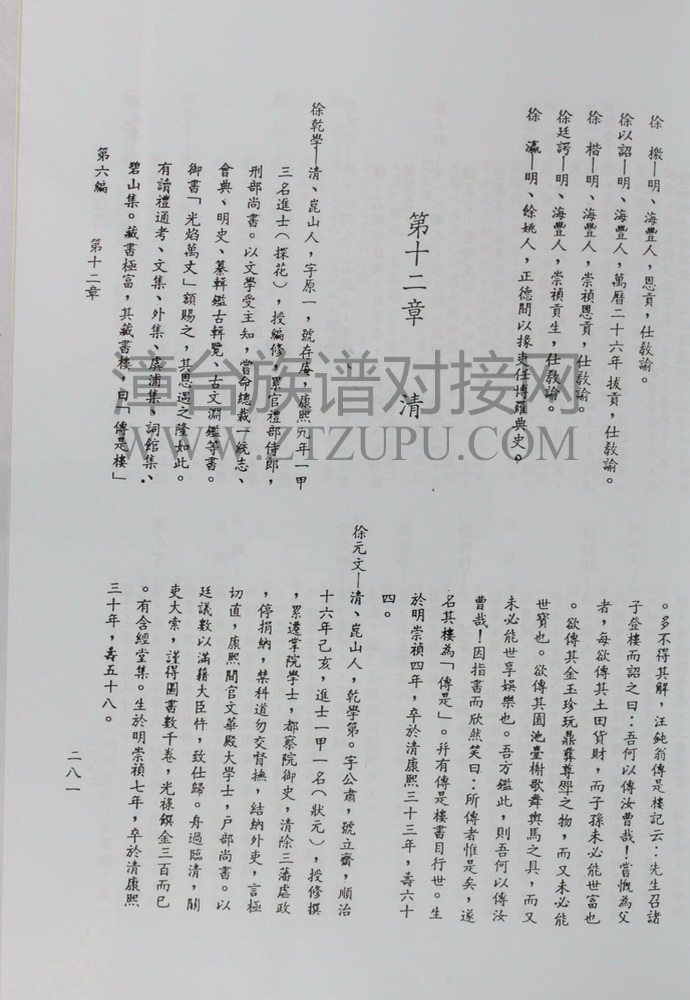 徐　檄—明、海豐人，恩貢，仕教諭。
徐以詔—明、海豐人，萬曆二十六年拔貢，仕教諭。
徐　楷—明、海豐人，崇禎恩貢，仕教諭。
徐廷諤—明、海豐人，崇禎貢生，仕教諭。
徐　瀛—明、餘姚人，正德間以掾吏任博羅典史。
第十二章　　清
徐乾學—清、崑山人，字原一，號存庵，康熙九年一甲
三名進士（探花），授編修，累官禮部侍郎，
刑部尚書。以文學受主知，嘗命總裁一統志、
會典、明史、纂輯鑑古輯覽、古文淵鑑等書。
御書「光焰萬丈」額賜之，其恩遇之隆如此。
有讀禮通考、文集、外集、虞浦集、詞館集、
碧山集。藏書極富，其藏書樓，曰「傳是樓」
。多不得其解，汪鈍翁傳是樓記云：先生召諸
子登樓而詔之曰：吾何以傳汝曹哉！嘗慨為父
者，每欲傳其土田貨財，而子孫未必能世富也
。欲傳其金玉珍玩鼎彝尊斝之物，而又未必能
世寶也。欲傳其園池臺榭歌舞輿馬之具，而又
未必能世享娛樂也。吾方鑑此，則吾何以傳汝
曹哉！因指書而欣然笑曰：所傳者惟是矣，遂
名其樓為「傳是」。幷有傳是樓書目行世。生
於明崇禎四年，卒於清康熙三十三年，壽六十
四。
徐元文—清、崑山人，乾學第。字公肅，號立齋，順治
十六年己亥，進士一甲一名（狀元），授修撰
，累遷掌院學士，都察院御史，清除三藩虐政
，停捐納，禁科道勿交督撫，結納外吏，言極
切直，康熙間官文華殿大學士，户部尚書。以
廷議數以滿籍大臣忤，致仕歸。舟過臨清，關
吏大索，謹得圖書數千卷，光祿饌金三百而已
。有含經堂集。生於明崇禎七年，卒於清康熙
三十年，壽五十八。
第六編　　第十二章
二八一
漳台族谱对接网
WWW.ZTZUPU.COM